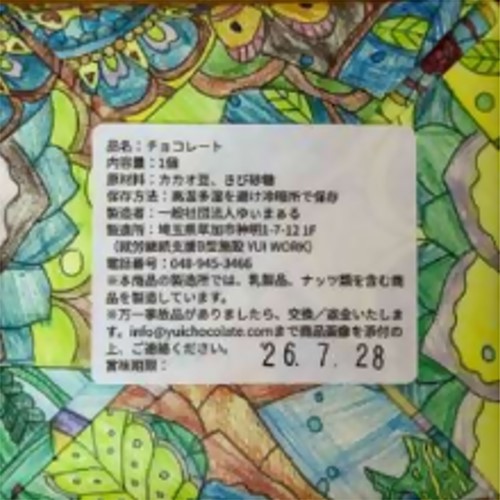 品名：チョコレート
内容量：1個
原材料：カカオ豆、きび砂糖
保存方法：高温多湿を避け冷暗所で保存
製造者：一般社団法人ゆぃまぁる
製造所：埼玉県草加市神明1-7-12 1F
（就労継続支援B型施設 YUI WORK）
電話番号：048-945-3466
※本商品の製造所では、乳製品、ナッツ類を含む商
品を製造しています。
※万一事故品がありましたら、交換／返金いたしま
す。info@yuichocolate.comまで商品画像を添付の
上、ご連絡ください。
賞味期限： '26. 7. 28